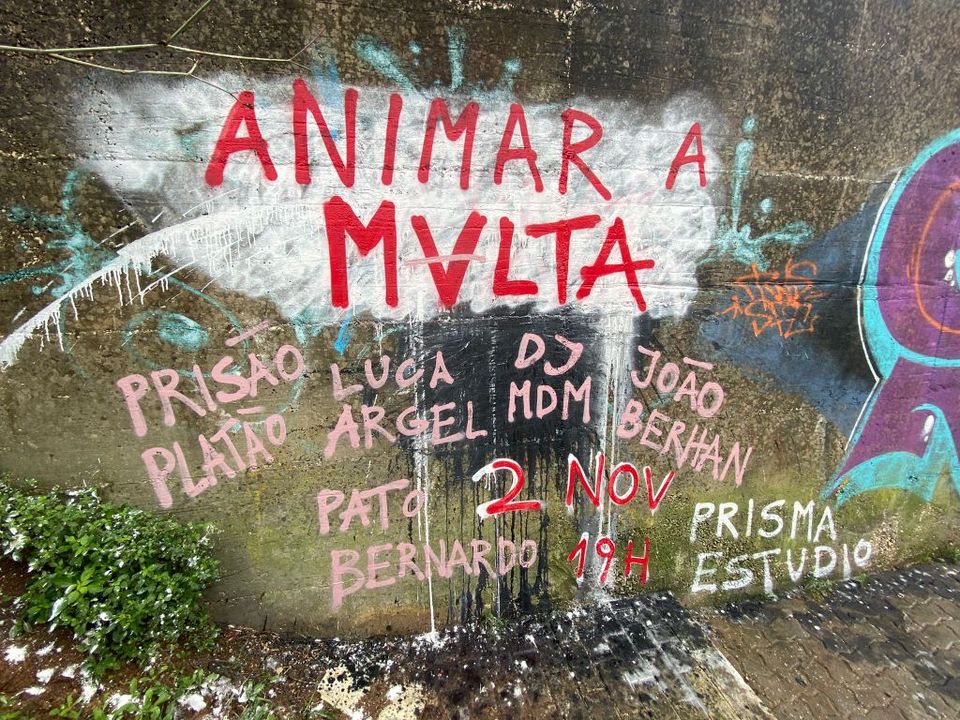 ANIMAR A
MVLTA
PRISÃO
PLATÃO
LUCA
ARGEL
DJ
MDM
JOÃO
BERHAN
PATO
BERNARDO
2 NOV
19H
PRISMA
ESTUDIO